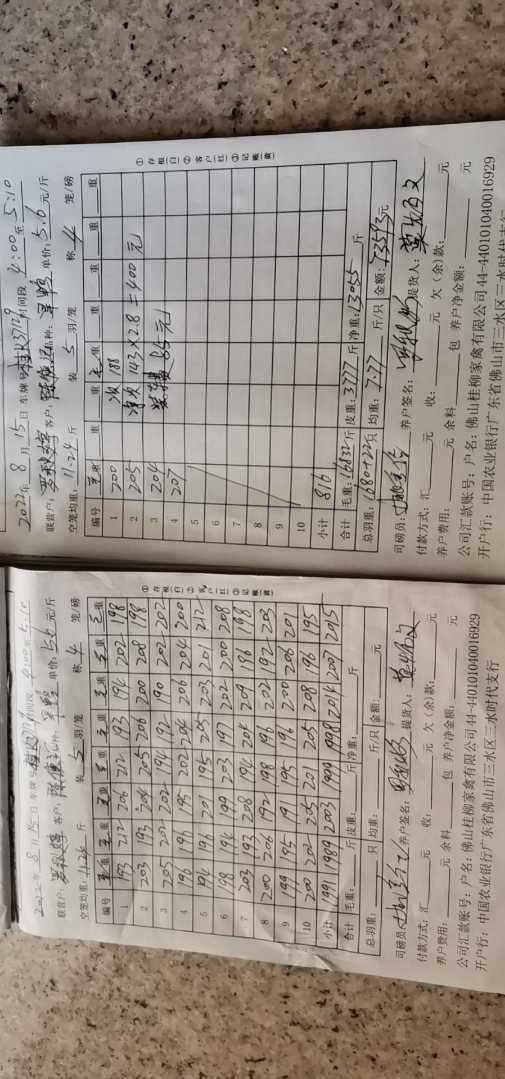 2022年 8月 15日 车牌号 时间段 4:00至5:10
联营户: 客户: 品种: 单价:5.6元/斤
空笼均重:11.24斤 装 5 羽/笼 称 4 笼/磅
编号 毛重 重 毛重 重 重 重
1 200 次 188
2 205 143×2.8=400元
3 204
4 207
5
6
7
8
9
10
小计 816
合计 毛重:16832斤 皮重:3777斤 净重:13055斤
总羽重:1680+22只 均重:7.77斤/只 金额:73593元
司磅员: 养户签名: 提货人:
付款方式:汇 元 收: 元 欠(余)款: 元
养户费用: 元 余料 包 养户净金额: 元
公司汇款账号:户名:佛山桂柳家禽有限公司44-440101040016929
开户行:中国农业银行广东省佛山市三水区三水时代支行
①存根白②客户红③记账黄
2022年 8月15日 车牌号 时间段 4:00至5:10
联营户: 客户: 品种: 单价:5.6元/斤
空笼均重:11.24斤 装 5 羽/笼 称 4 笼/磅
编号 毛重 毛重 毛重 毛重 毛重 毛重 毛重 毛重
1 193 212 206 212 193 194 202 198
2 203 193 204 205 206 200 208 198
3 205 202 202 194 192 190 202 202
4 196 196 195 202 204 206 204 200
5 194 196 201 195 205 203 201 212
6 198 194 199 203 197 202 200 208
7 203 193 208 194 204 209 196 198
8 200 206 192 198 196 202 192 203
9 199 195 191 195 196 200 206 201
10 200 202 205 201 205 208 196 195
小计 1991 1989 2003 1999 1998 2014 2007 2015
合计 毛重: 斤 皮重: 斤 净重: 斤
总羽重: 只 均重: 斤/只 金额: 元
司磅员: 养户签名: 提货人:
付款方式:汇 元 收: 元 欠(余)款: 元
养户费用: 元 余料 包 养户净金额: 元
公司汇款账号:户名:佛山桂柳家禽有限公司44-440101040016929
开户行:中国农业银行广东省佛山市三水区三水时代支行
①存根白②客户红③记账黄